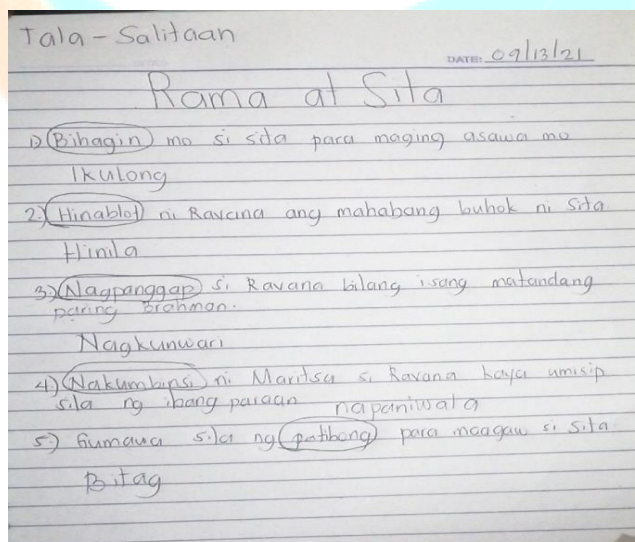 Tala - Salitaan
DATE: 09/13/21
Rama at Sita
1) Bihagin mo si sita para maging asawa mo
Ikulong
2.) Hinablot ni Ravana ang mahabang buhok ni Sita
Hinila
3.) Nagpanggap si Ravana bilang isang matandang
paring Brahman.
Nagkunwari
4.) Nakumbinsi ni Maritsa si Ravana kaya umisip
sila ng ibang paraan napaniwala
5.) Gumawa sila ng patibong para maagaw si Sita
Bitag